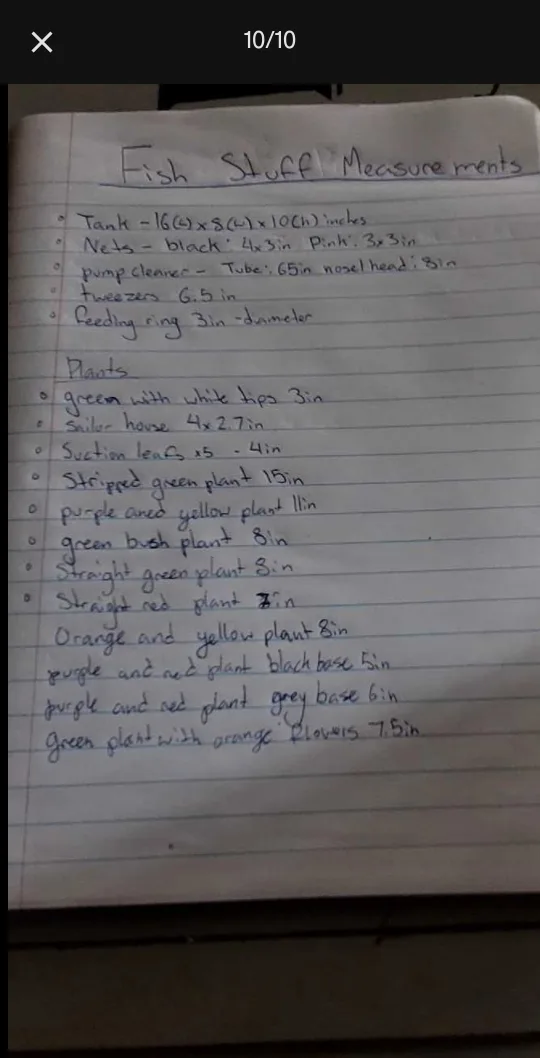 10/10
Fish Stuff Measurements
Tank - 16(L) x 8(W) x 10(h) inches
Nets - black: 4x3in Pink: 3x3in
pump cleaner - Tube: 65in nosel head: 8in
tweezers 6.5in
feeding ring 3in - diameter
Plants
green with white tips 3in
sailor house 4x2.7in
Suction leafs x5 - 4in
Stripped green plant 15in
purple aned yellow plant 11in
green bush plant 8in
Straight green plant 8in
Straight red plant in
Orange and yellow plant 8in
purple and red plant black base 5in
purple and red plant grey base 6in
green plant with orange flowers 7.5in